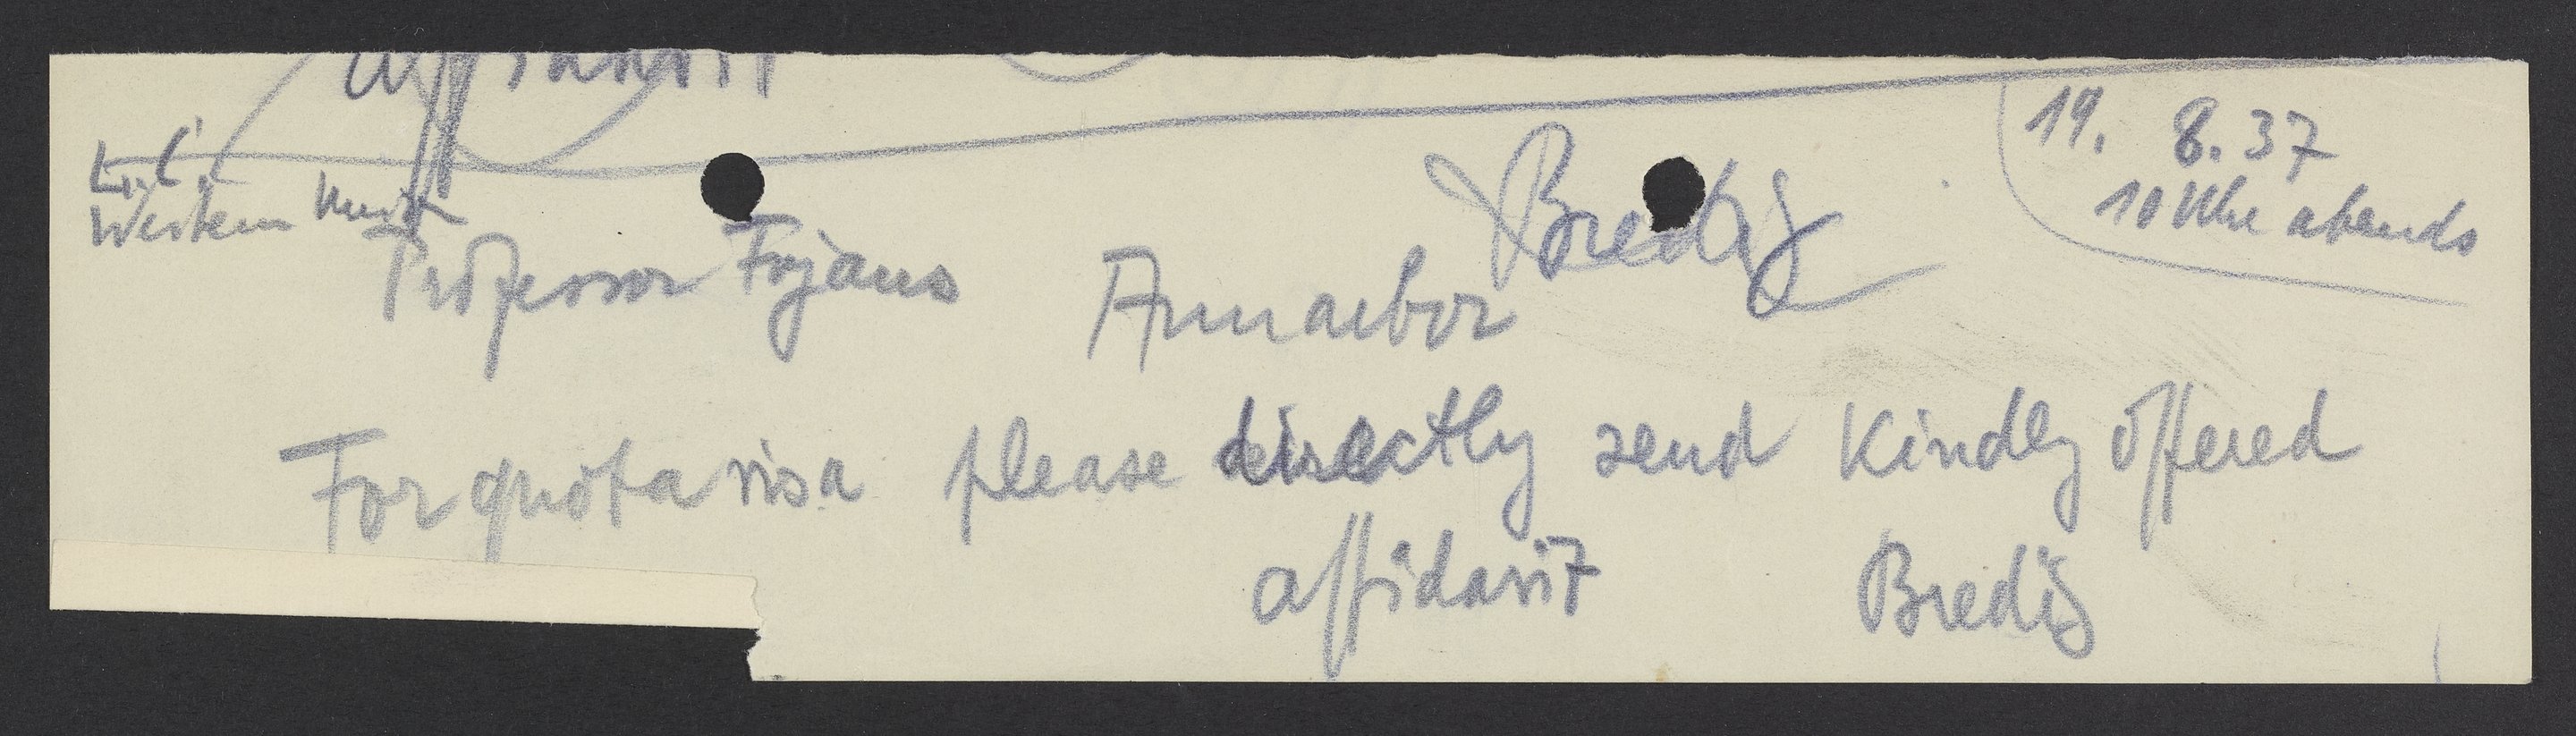 affidavit
19. 8. 37
10 Uhr abends
Bredig
Western Union
Professor Fajans Annarbor
For quota visa please directly send kindly offered
affidavit Bredig